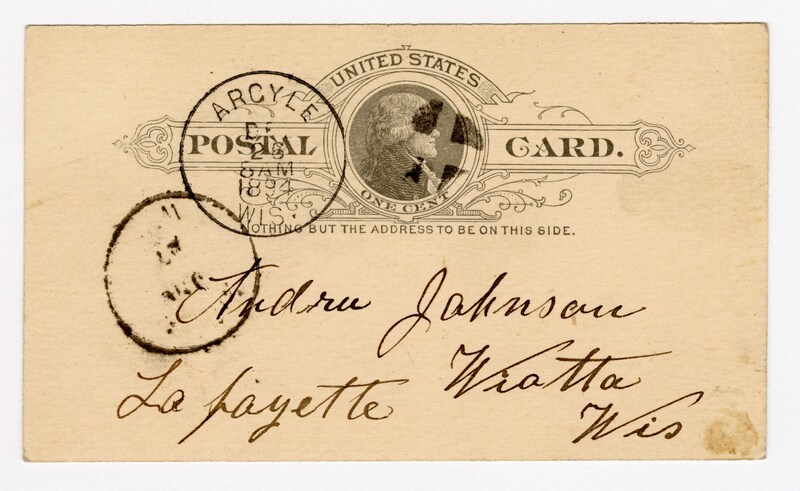 UNITED STATES
POSTAL CARD.
ONE CENT
NOTHING BUT THE ADDRESS TO BE ON THIS SIDE.
ARGYLE
26
8AM
1894
WIS.
Andrew Johnson
Wiotta
La fayette
Wis